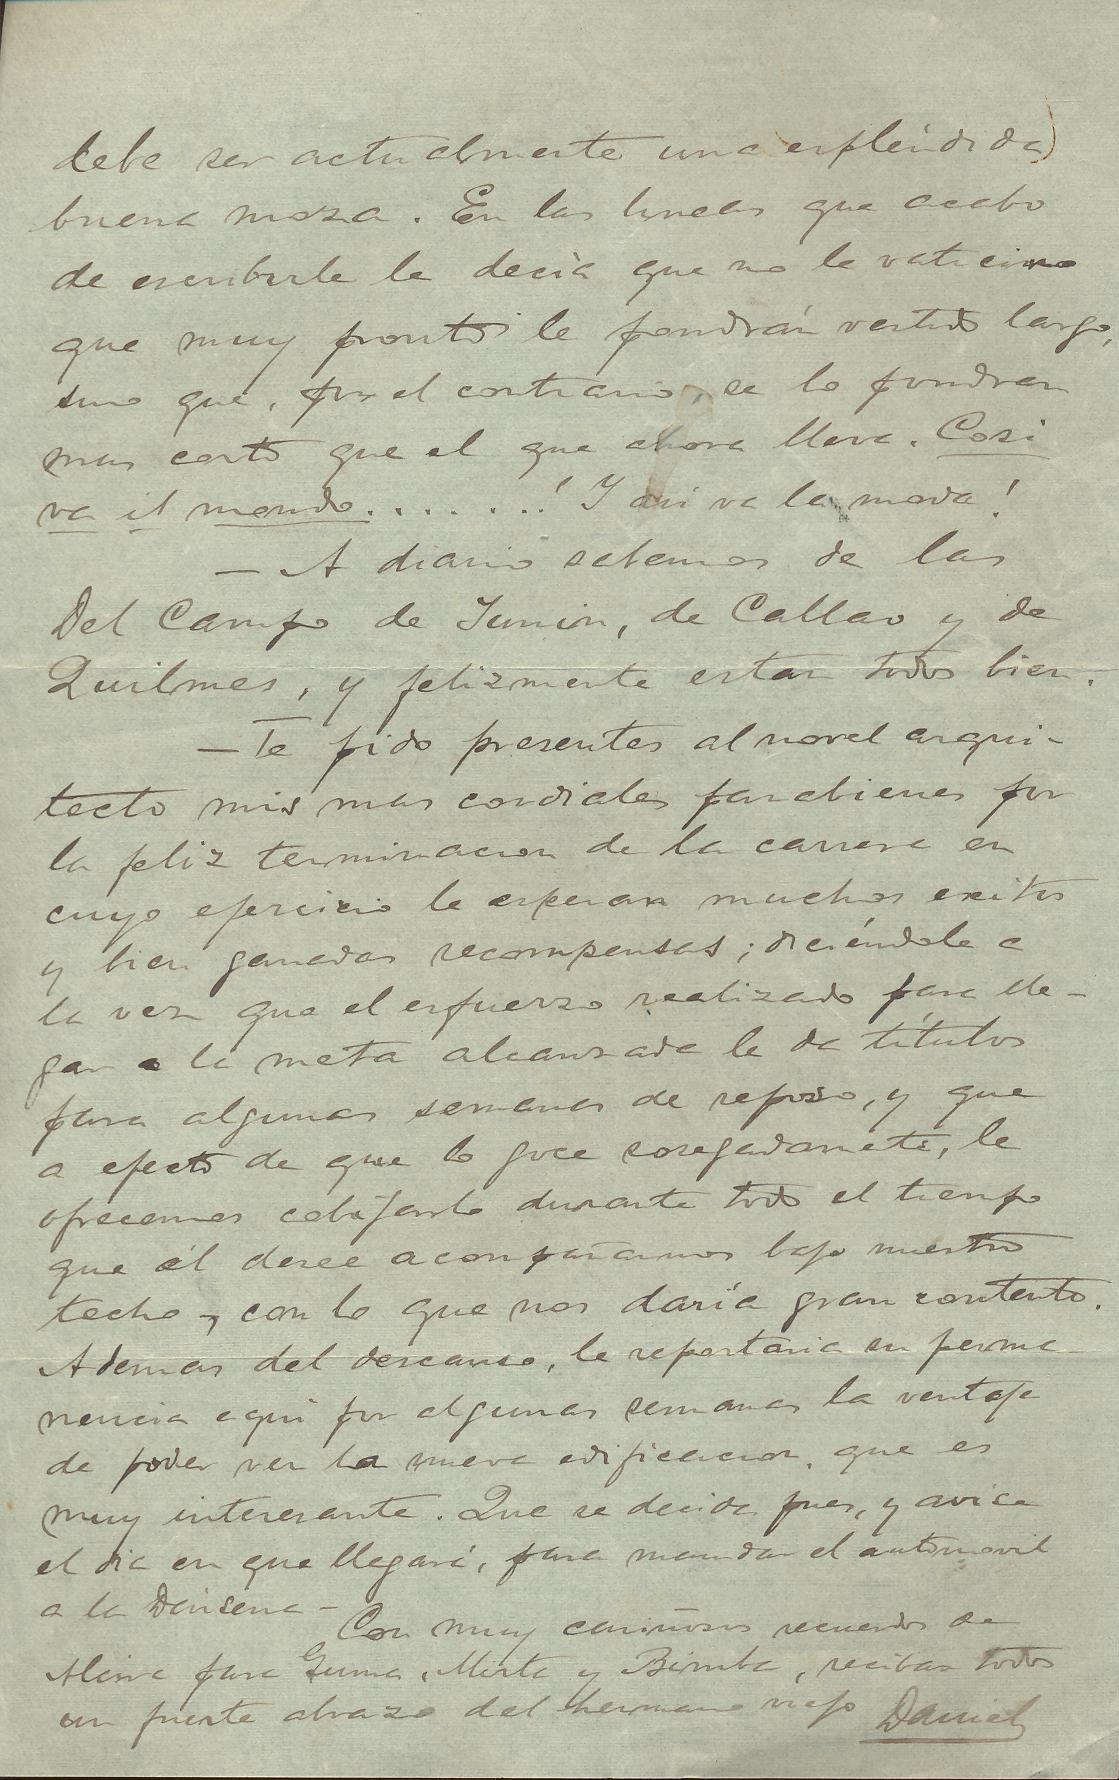 debe ser actualmente una espléndida
buena moza. En las lineas que acabo
de escribirle le decia que no le vaticino
que muy pronto le pondrán vestido largo,
sino que, por el contrario, se lo pondran
mas corto que el que ahora lleva. Cosi
va il mondo........! Y asi va la moda!
— A diario sabemos de las
Del Campo de Junin, de Callao y de
Quilmes, y felizmente estan todos bien.
— Te pido presentes al novel arqui-
tecto mis mas cordiales parabienes por
la feliz terminacion de la carrera en
cuyo ejercicio le esperan muchos exitos
y bien ganadas recompensas; diciéndole a
la vez que el esfuerzo realizado para lle-
gar a la meta alcanzada le da títulos
para algunas semanas de reposo, y que
a efecto de que lo goce sosegadamete, le
ofrecemos cobijarlo durante todo el tiempo
que él desee acompañarnos bajo nuestro
techo, con lo que nos daría gran contento.
Ademas del descanso, le reportaria su perma
nencia aqui por algunas semanas la ventaja
de poder ver la nueva edificacion, que es
muy interesante. Que se decida pues, y avise
el dia en que llegará, para mandar el automovil
a la Dársena —
Con muy cariñosos recuerdos de
para Guma, Mirta y Bimba, reciban todos
un fuerte abrazo del hermano viejo Daniel